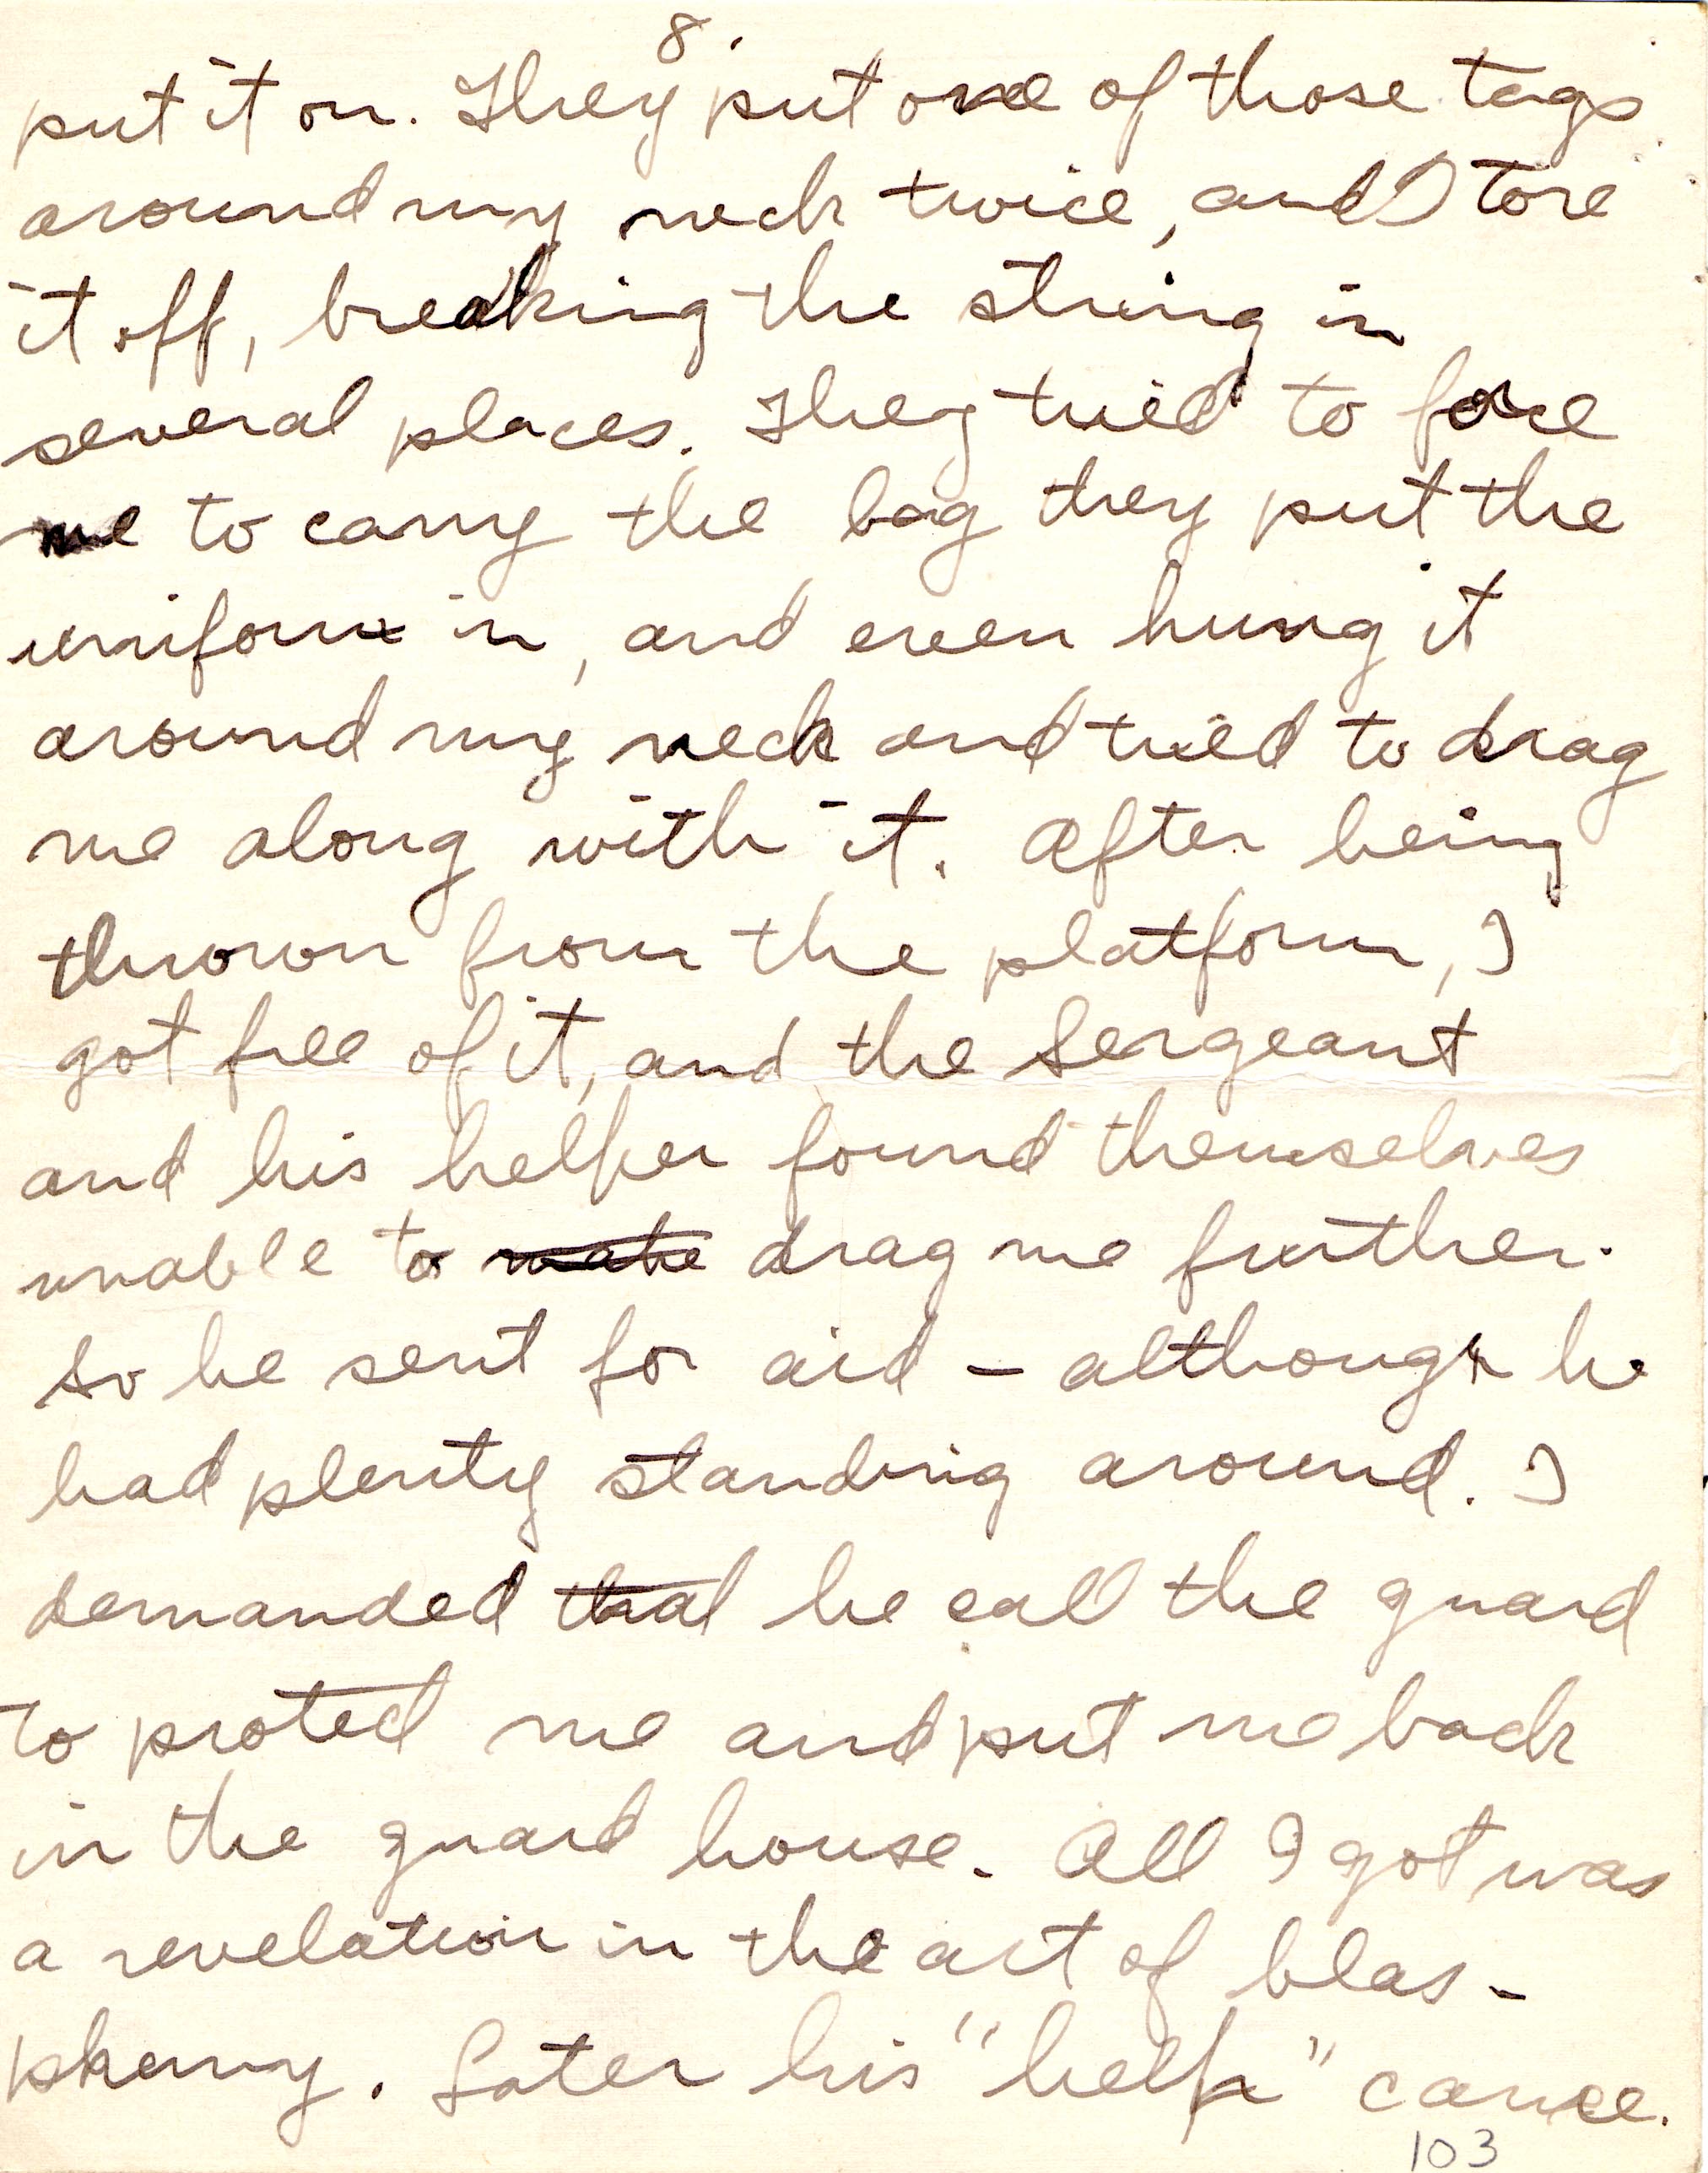 8.
put it on. They put one of those tags
around my neck twice, and I tore
it off, breaking the string in
several places. They tried to force
me to carry the bag they put the
uniform in, and even hung it
around my neck and tried to drag
me along with it. After being
thrown from the platform, I
got free of it, and the Sergeant
and his helper found themselves
unable to make drag me further.
So he sent for aid – although he
had plenty standing around. I
demanded that he call the guard
to protect me and put me back
in the guard house. All I got was
a revelation in the art of blas-
phemy. Later his "help" came.
103